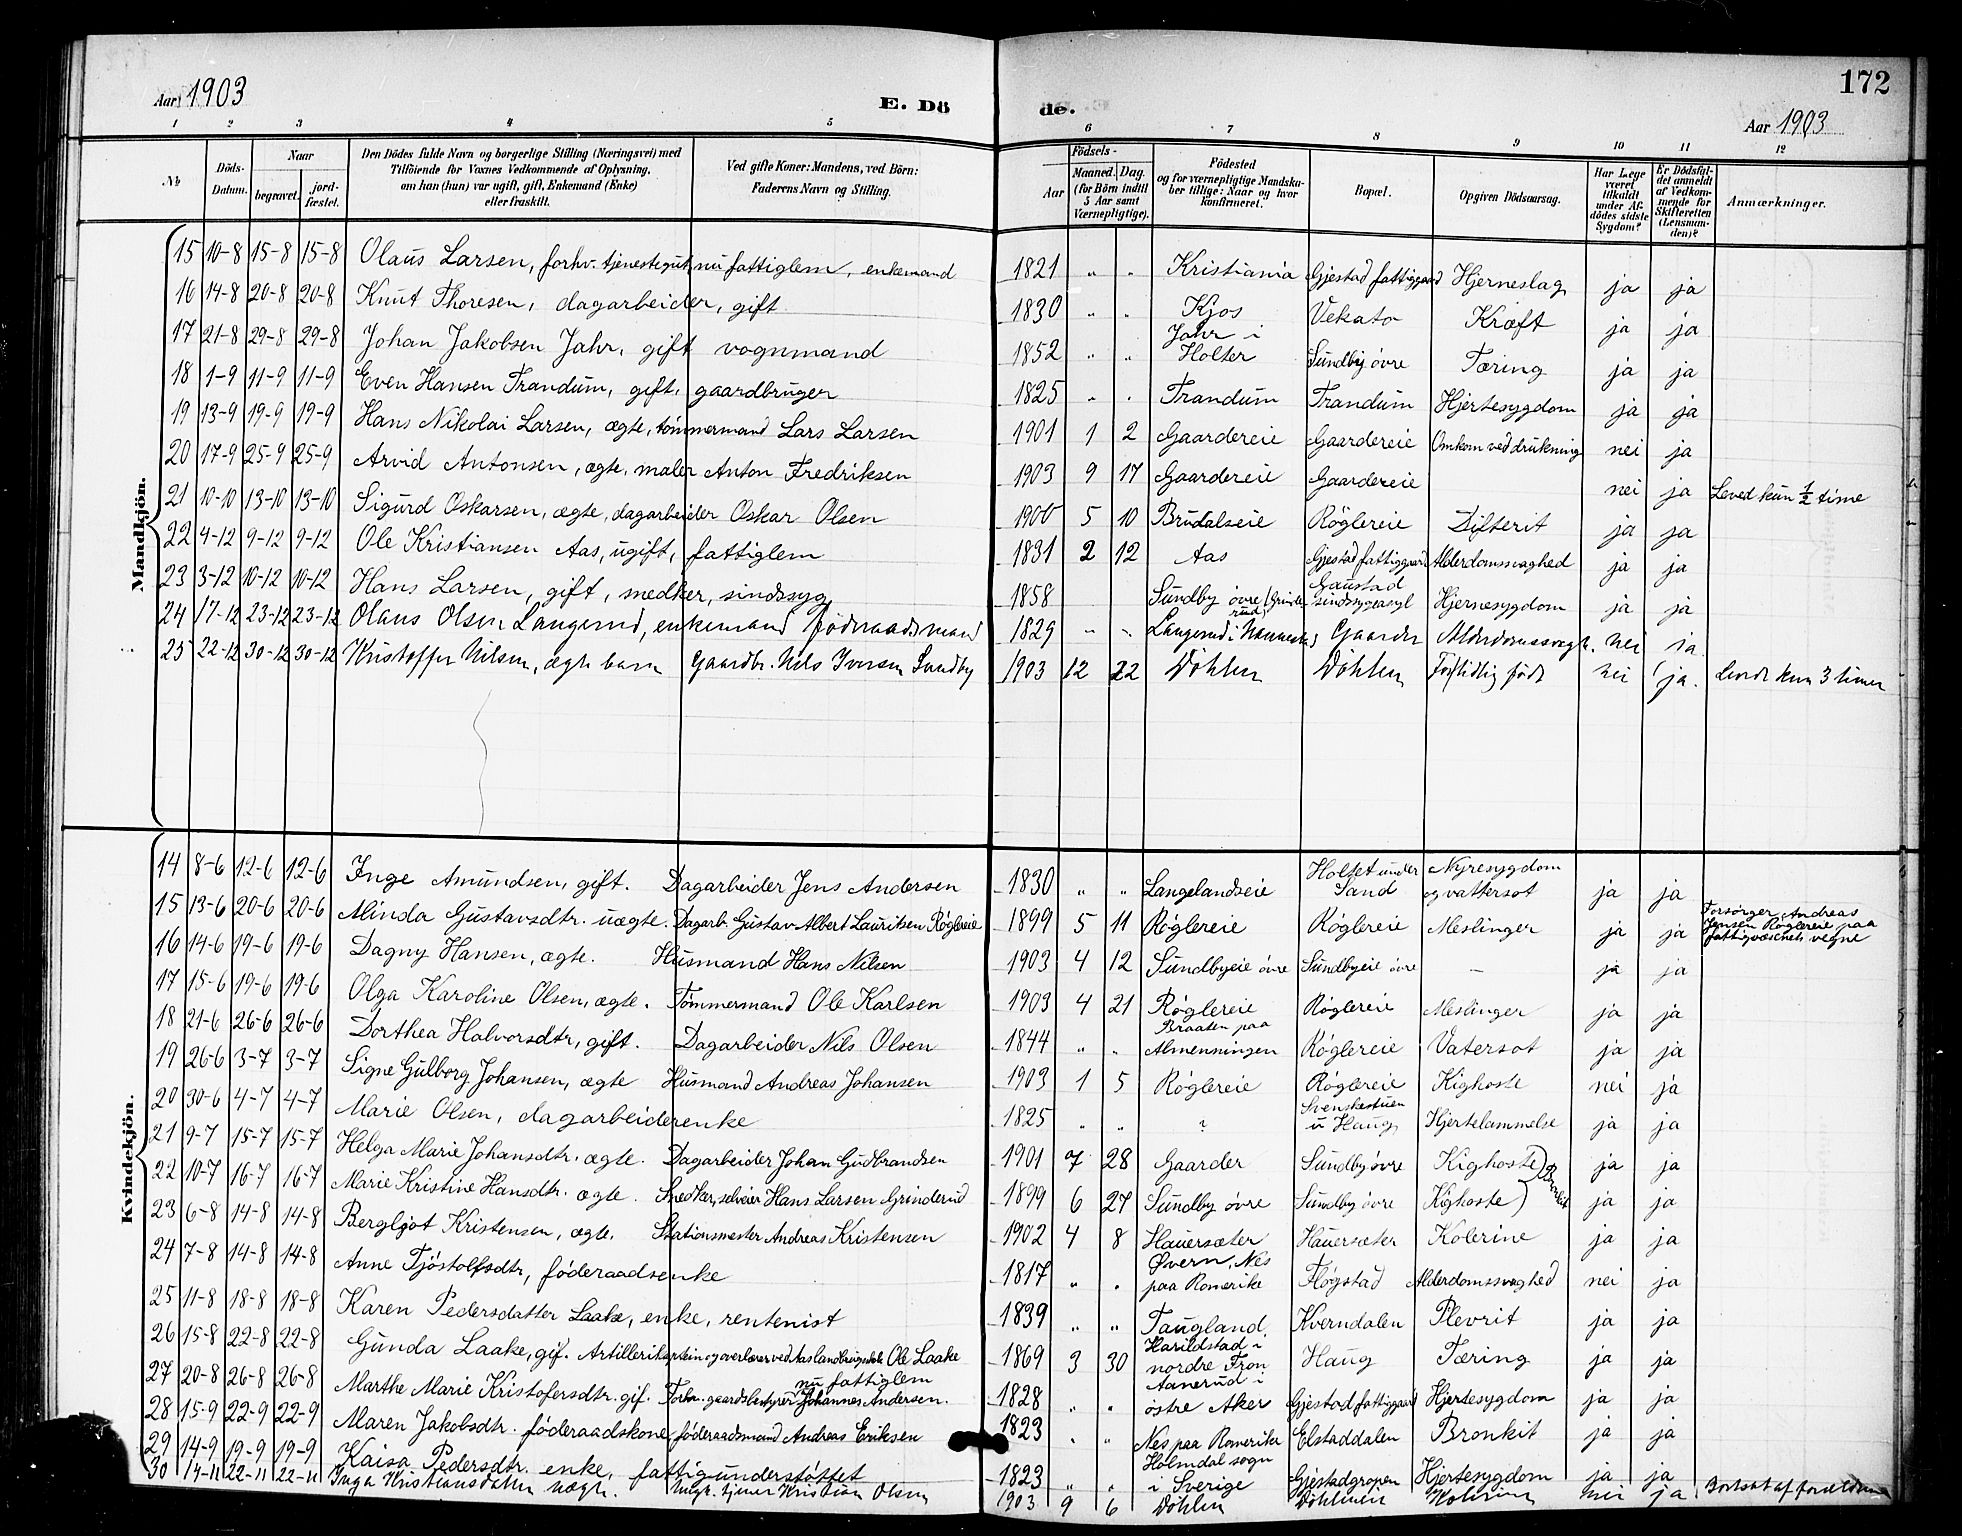 Aar 1903
E. Dö
de.
172
Aar 1903
1 2 3 4 5 6 7 8 9 10 11 12
No
Döds-Datum.
Naar
begravet.
jord-fæstet.
Den Dödes fulde Navn og borgerlige Stilling (Næringsvei) med
Tilföiende for Voxnes Vedkommende af Oplysning,
om han (hun) var ugift, gift, Enkemand (Enke)
eller fraskilt.
Ved gifte Koner: Mandens, ved Börn:
Faderens Navn og Stilling.
Födsels-
Aar
Maaned. Dag.
(for Börn indtil
5 Aar samt
Værnepligtige).
Födested
og for værnepligtige Mandska-
ber tillige: Naar og hvor
konfirmeret.
Bopæl.
Opgiven Dödsaarsag.
Har Læge
været
tilkaldt
under Af-
dödes sidste
Sygdom?
Er Dödsfal-
det anmeldt
af Vedkom-
mende for
Skifteretten
(Lensman-
den)?
Anmærkninger.
Mandkjön.
15 10-8 15-8 15-8 Olaus Larsen, forhv. tjenestegut, nu fattiglem, enkemand 1821 " " Kristiania Gjestad fattiggaard Hjerneslag ja ja
16 14-8 20-8 20-8 Knut Thoresen, dagarbeider, gift 1830 " " Kjos Vekato Kræft ja ja
17 21-8 29-8 29-8 Johan Jakobsen Jahr, gift vognmand 1852 " " Jahr i Holter Sundby övre Tæring ja ja
18 1-9 11-9 11-9 Even Hansen Trandum, gift, gaardbruger 1825 " " Trandum Trandum Hjertesygdom ja ja
19 13-9 19-9 19-9 Hans Nikolai Larsen, ægte, tömmermand Lars Larsen 1901 1 2 Gaardereie Gaardereie Omkom ved drukning nei ja
20 17-9 25-9 25-9 Arvid Antonsen, ægte, maler Anton Fredriksen 1903 9 17 Gaardereie Gaardereie nei ja Leved kun ½ time
21 10-10 13-10 13-10 Sigurd Oskarsen, ægte, dagarbeider Oskar Olsen 1900 5 10 Brudalseie Röglereie Difterit ja ja
22 4-12 9-12 9-12 Ole Kristiansen Aas, ugift, fattiglem 1831 2 12 Aas Gjestad fattiggaard Alderdomssvaghed ja ja
23 3-12 10-12 10-12 Hans Larsen, gift, snedker, sindssyg 1858 Sundby övre (Grinderud) Gaustad sindssygeasyl Hjernesygdom ja ja
24 17-12 23-12 23-12 Olaus Olsen Langerud, enkemand föderaadsmand 1829 " " Langerud i Gaarder nei ja
25 22-12 30-12 30-12 Kristoffer Nilsen, ægte barn Gaardbr. Nils Iversen Sundby 1903 12 22 Döhlen Döhlen For tidlig født nei ja. Levede kun 3 timer
Kvindekjön.
14 8-6 12-6 12-6 Inge Amundsen, gift. Dagarbeider Jens Andersen 1830 " " Langelandseie Holtet under Sand Nyresygdom og vattersot ja ja
15 13-6 20-6 20-6 Minda Gustavsdtr. uægte. Dagarb. Gustav Albert Lauritsen Röglereie 1899 5 11 Röglereie Röglereie Meslinger ja ja Forsörger, Andreas Jensen Röglereie paa fattigvæsenets vegne
16 14-6 19-6 19-6 Dagny Hansen, ægte. Husmand Hans Nilsen 1903 4 12 Sundbyeie övre Sundbyeie övre — ja ja
17 15-6 19-6 19-6 Olga Karoline Olsen, ægte. Tömmermand Ole Karlsen 1903 4 21 Röglereie Röglereie Meslinger ja ja
18 21-6 26-6 26-6 Dorthea Halvorsdtr, gift. Dagarbeider Nils Olsen 1844 " " Braaten paa Almenningen Röglereie Vatersot ja ja
19 26-6 3-7 3-7 Signe Gulborg Johansen, ægte Husmand Andreas Johansen 1903 1 5 Röglereie Röglereie Kighoste nei ja
20 30-6 4-7 4-7 Marie Olsen, dagarbeiderenke 1825 " " ? Svenskestuen u Haug Hjertelammelse ja ja
21 9-7 15-7 15-7 Helga Marie Johansdtr. ægte. Dagarbeider Johan Gudbrandsen 1901 7 28 Gaarder Sundby övre Kighoste ja ja
22 10-7 16-7 16-7 Marie Kristine Hansdtr. ægte. Snedker, selveier Hans Larsen Grinderud 1899 6 27 Sundby övre Sundby övre Kighoste ja ja
23 6-8 14-8 14-8 Bergljot Kristensen, ægte. Stationsmester Andreas Kristensen 1902 4 8 Hauersæter Hauersæter Kolerine ja ja
24 7-8 14-8 14-8 Anne Tjöstolfsdtr, föderaadsenke 1817 " " Övern, Nes paa Romerike Flögstad Alderdomssvaghed nei ja
25 11-8 18-8 18-8 Karen Pedersdatter Laake, enke, rentenist 1839 " " Taugland Kverndalen Plevrit ja ja
26 15-8 22-8 22-8 Gunda Laake, gif. Artillerikaptein og overlærer ved Aas landbrugsskole Ole Laake 1869 3 30 Harildstad i nordre Fron Haug Tæring ja ja
27 20-8 26-8 26-8 Marthe Marie Kristofersdtr. gif. Forhv. gaardsbestyrer nu fattiglem Johannes Andersen. 1828 " " Aanerud i östre Aker Gjestad fattiggaard Hjertesygdom ja ja
28 15-9 22-9 22-9 Maren Jakobsdtr. föderaadskone, föderaadsmand Andreas Eriksen 1823 " " Nes paa Romerike Elstaddalen Bronkit ja ja
29 14-9 19-9 19-9 Kaisa Pedersdtr. enke, fattigunderstöttet 1823 " " Holmdal sogn i Sverige Gjestadgropen Hjertesygdom ja ja
30 14-11 22-11 22-11 Inga Kristiansdatter uægte. Ungk. tjener Kristian Olsen 1903 9 6 Döhlen Döhleneie Kolerine nei ja Bortsat af